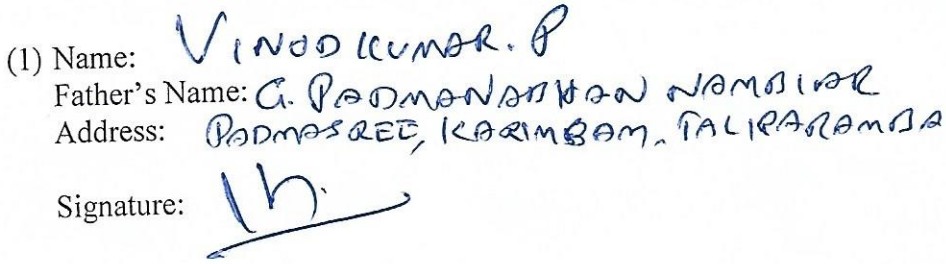 (1) Name: VINOD KUMAR. P
Father's Name: G. PADMANABHAN NAMBIAR
Address: PADMASREE, KARIMBAM, TALIPARAMBA
Signature: